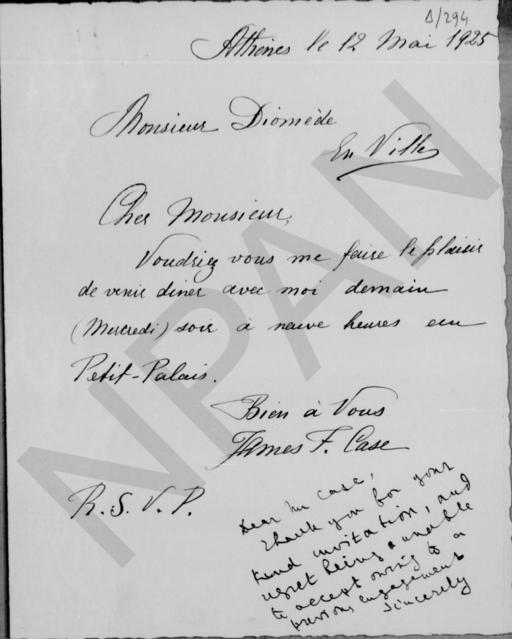 Δ/294
Athènes le 12 Mai 1925
Monsieur Diomède
En Ville
Cher Monsieur,
Voudriez vous me faire le plaisir
de venir diner avec moi demain
(Mercredi) soir à neuve heures au
Petit-Palais.
Bien à Vous
James F. Case
R.S.V.P.
Dear Mr Case,
Thank you for your
kind invitation, and
regret being unable
to accept owing to a
previous engagement
Sincerely
NPAN